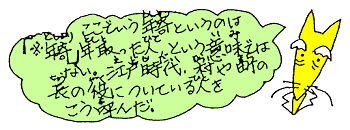 ここでいう年寄というのは
年寄=年取った人、という意味では
ない。江戸時代、村や町の
長の役についている人を
こう呼んだ。